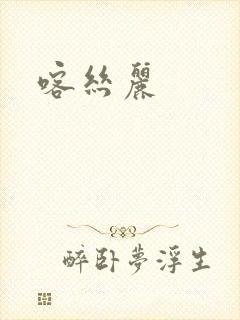 喀絲麗
醉卧夢浮生